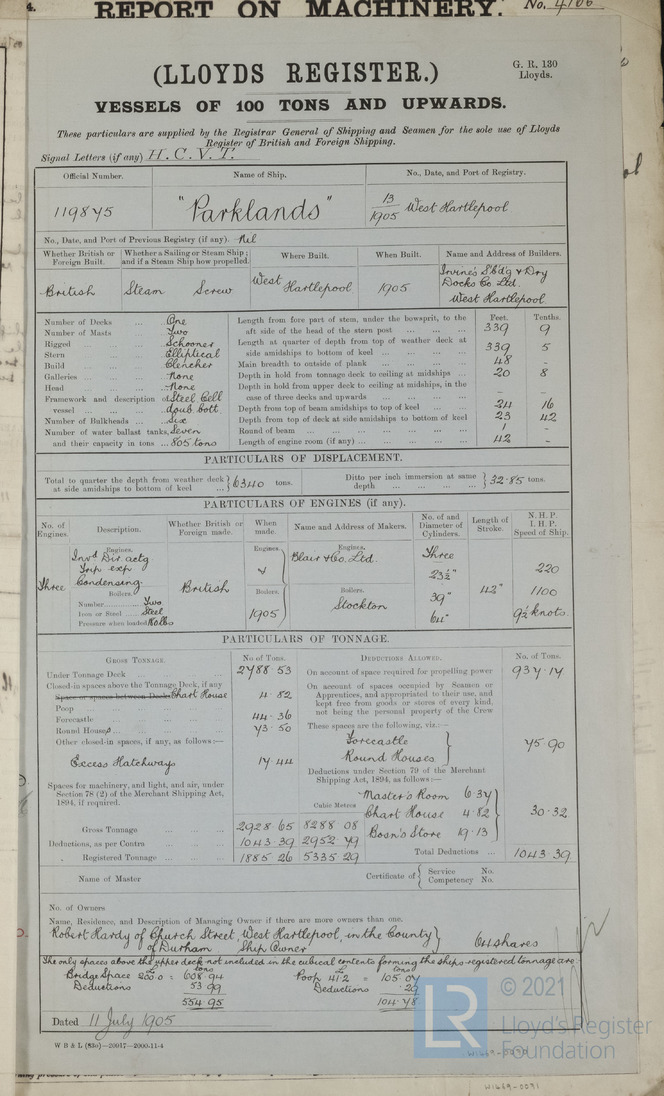 4.
REPORT ON MACHINERY. No. 4166
(LLOYDS REGISTER.)
G. R. 130
Lloyds.
VESSELS OF 100 TONS AND UPWARDS.
These particulars are supplied by the Registrar General of Shipping and Seamen for the sole use of Lloyds
Register of British and Foreign Shipping.
Signal Letters (if any) H. C. V. T.
Official Number. Name of Ship. No., Date, and Port of Registry.
119845 "Parklands" 13/1905 West Hartlepool
No., Date, and Port of Previous Registry (if any). Nil
Whether British or Foreign Built. Whether a Sailing or Steam Ship; and if a Steam Ship how propelled. Where Built. When Built. Name and Address of Builders.
British Steam Screw West Hartlepool 1905 Irvine's S'bd'g & Dry Docks Co Ltd. West Hartlepool
Number of Decks ... One
Number of Masts ... Two
Rigged ... Schooner
Stern ... Elliptical
Build ... Clencher
Galleries ... None
Head ... None
Framework and description of vessel ... Steel Cell doub. bott.
Number of Bulkheads ... Six
Number of water ballast tanks, Seven
and their capacity in tons ... 805 tons
Feet. Tenths.
Length from fore part of stem, under the bowsprit, to the
aft side of the head of the stern post ... 339 9
Length at quarter of depth from top of weather deck at
side amidships to bottom of keel ... 339 5
Main breadth to outside of plank ... 48 -
Depth in hold from tonnage deck to ceiling at midships ... 20 8
Depth in hold from upper deck to ceiling at midships, in the
case of three decks and upwards ... - -
Depth from top of beam amidships to top of keel ... 24 16
Depth from top of deck at side amidships to bottom of keel 23 42
Round of beam ... 1 -
Length of engine room (if any) ... 42 -
PARTICULARS OF DISPLACEMENT.
Total to quarter the depth from weather deck at side amidships to bottom of keel ... 6340 tons.
Ditto per inch immersion at same depth ... 32.85 tons.
PARTICULARS OF ENGINES (if any).
No. of Engines. Description. Whether British or Foreign made. When made. Name and Address of Makers. No. of and Diameter of Cylinders. Length of Stroke. N. H. P. I. H. P. Speed of Ship.
Engines.
Three Inv'd Dir. actg
Trip exp
Condensing
Boilers.
Number Two
Iron or Steel Steel
Pressure when loaded 180 lbs
British
Engines.
Boilers.
1905
Engines.
Blair & Co. Ltd.
Boilers.
Stockton
Three
23½"
39"
64"
42"
220
1100
9½ knots.
PARTICULARS OF TONNAGE.
GROSS TONNAGE. No of Tons.
Under Tonnage Deck ... 2788.53
Closed-in spaces above the Tonnage Deck, if any
Space or spaces between Decks Chart House 4.82
Poop ...
Forecastle ... 44.36
Round House ... 73.50
Other closed-in spaces, if any, as follows:—
Excess Hatchways 17.44
Spaces for machinery, and light, and air, under
Section 78 (2) of the Merchant Shipping Act,
1894, if required.
Cubic Metres
Gross Tonnage ... 2928.65 8288.08
Deductions, as per Contra ... 1043.39 2952.79
Registered Tonnage ... 1885.26 5335.29
DEDUCTIONS ALLOWED. No. of Tons.
On account of space required for propelling power 937.17
On account of spaces occupied by Seamen or
Apprentices, and appropriated to their use, and
kept free from goods or stores of every kind,
not being the personal property of the Crew
These spaces are the following, viz.:—
Forecastle
Round Houses 75.90
Deductions under Section 79 of the Merchant
Shipping Act, 1894, as follows:—
Master's Room 6.37
Chart House 4.82
Bosn's Store 19.13
30.32
Total Deductions ... 1043.39
Name of Master
Certificate of Service No. Competency No.
No. of Owners
Name, Residence, and Description of Managing Owner if there are more owners than one.
Robert Hardy of Church Street, West Hartlepool, in the County
of Durham Ship Owner 64 shares
The only spaces above the upper deck not included in the cubical contents forming the ships registered tonnage are:
Bridge Space 200.0 = 608.94 tons Poop 41.2 = 105.07 tons
Deductions 53.99 Deductions .29
554.95 104.78
Dated 11 July 1905
W B & L (83o)—20017—2000-11-4
© 2021
LR
Lloyd's Register
Foundation
W1669-0090
W1669-0091